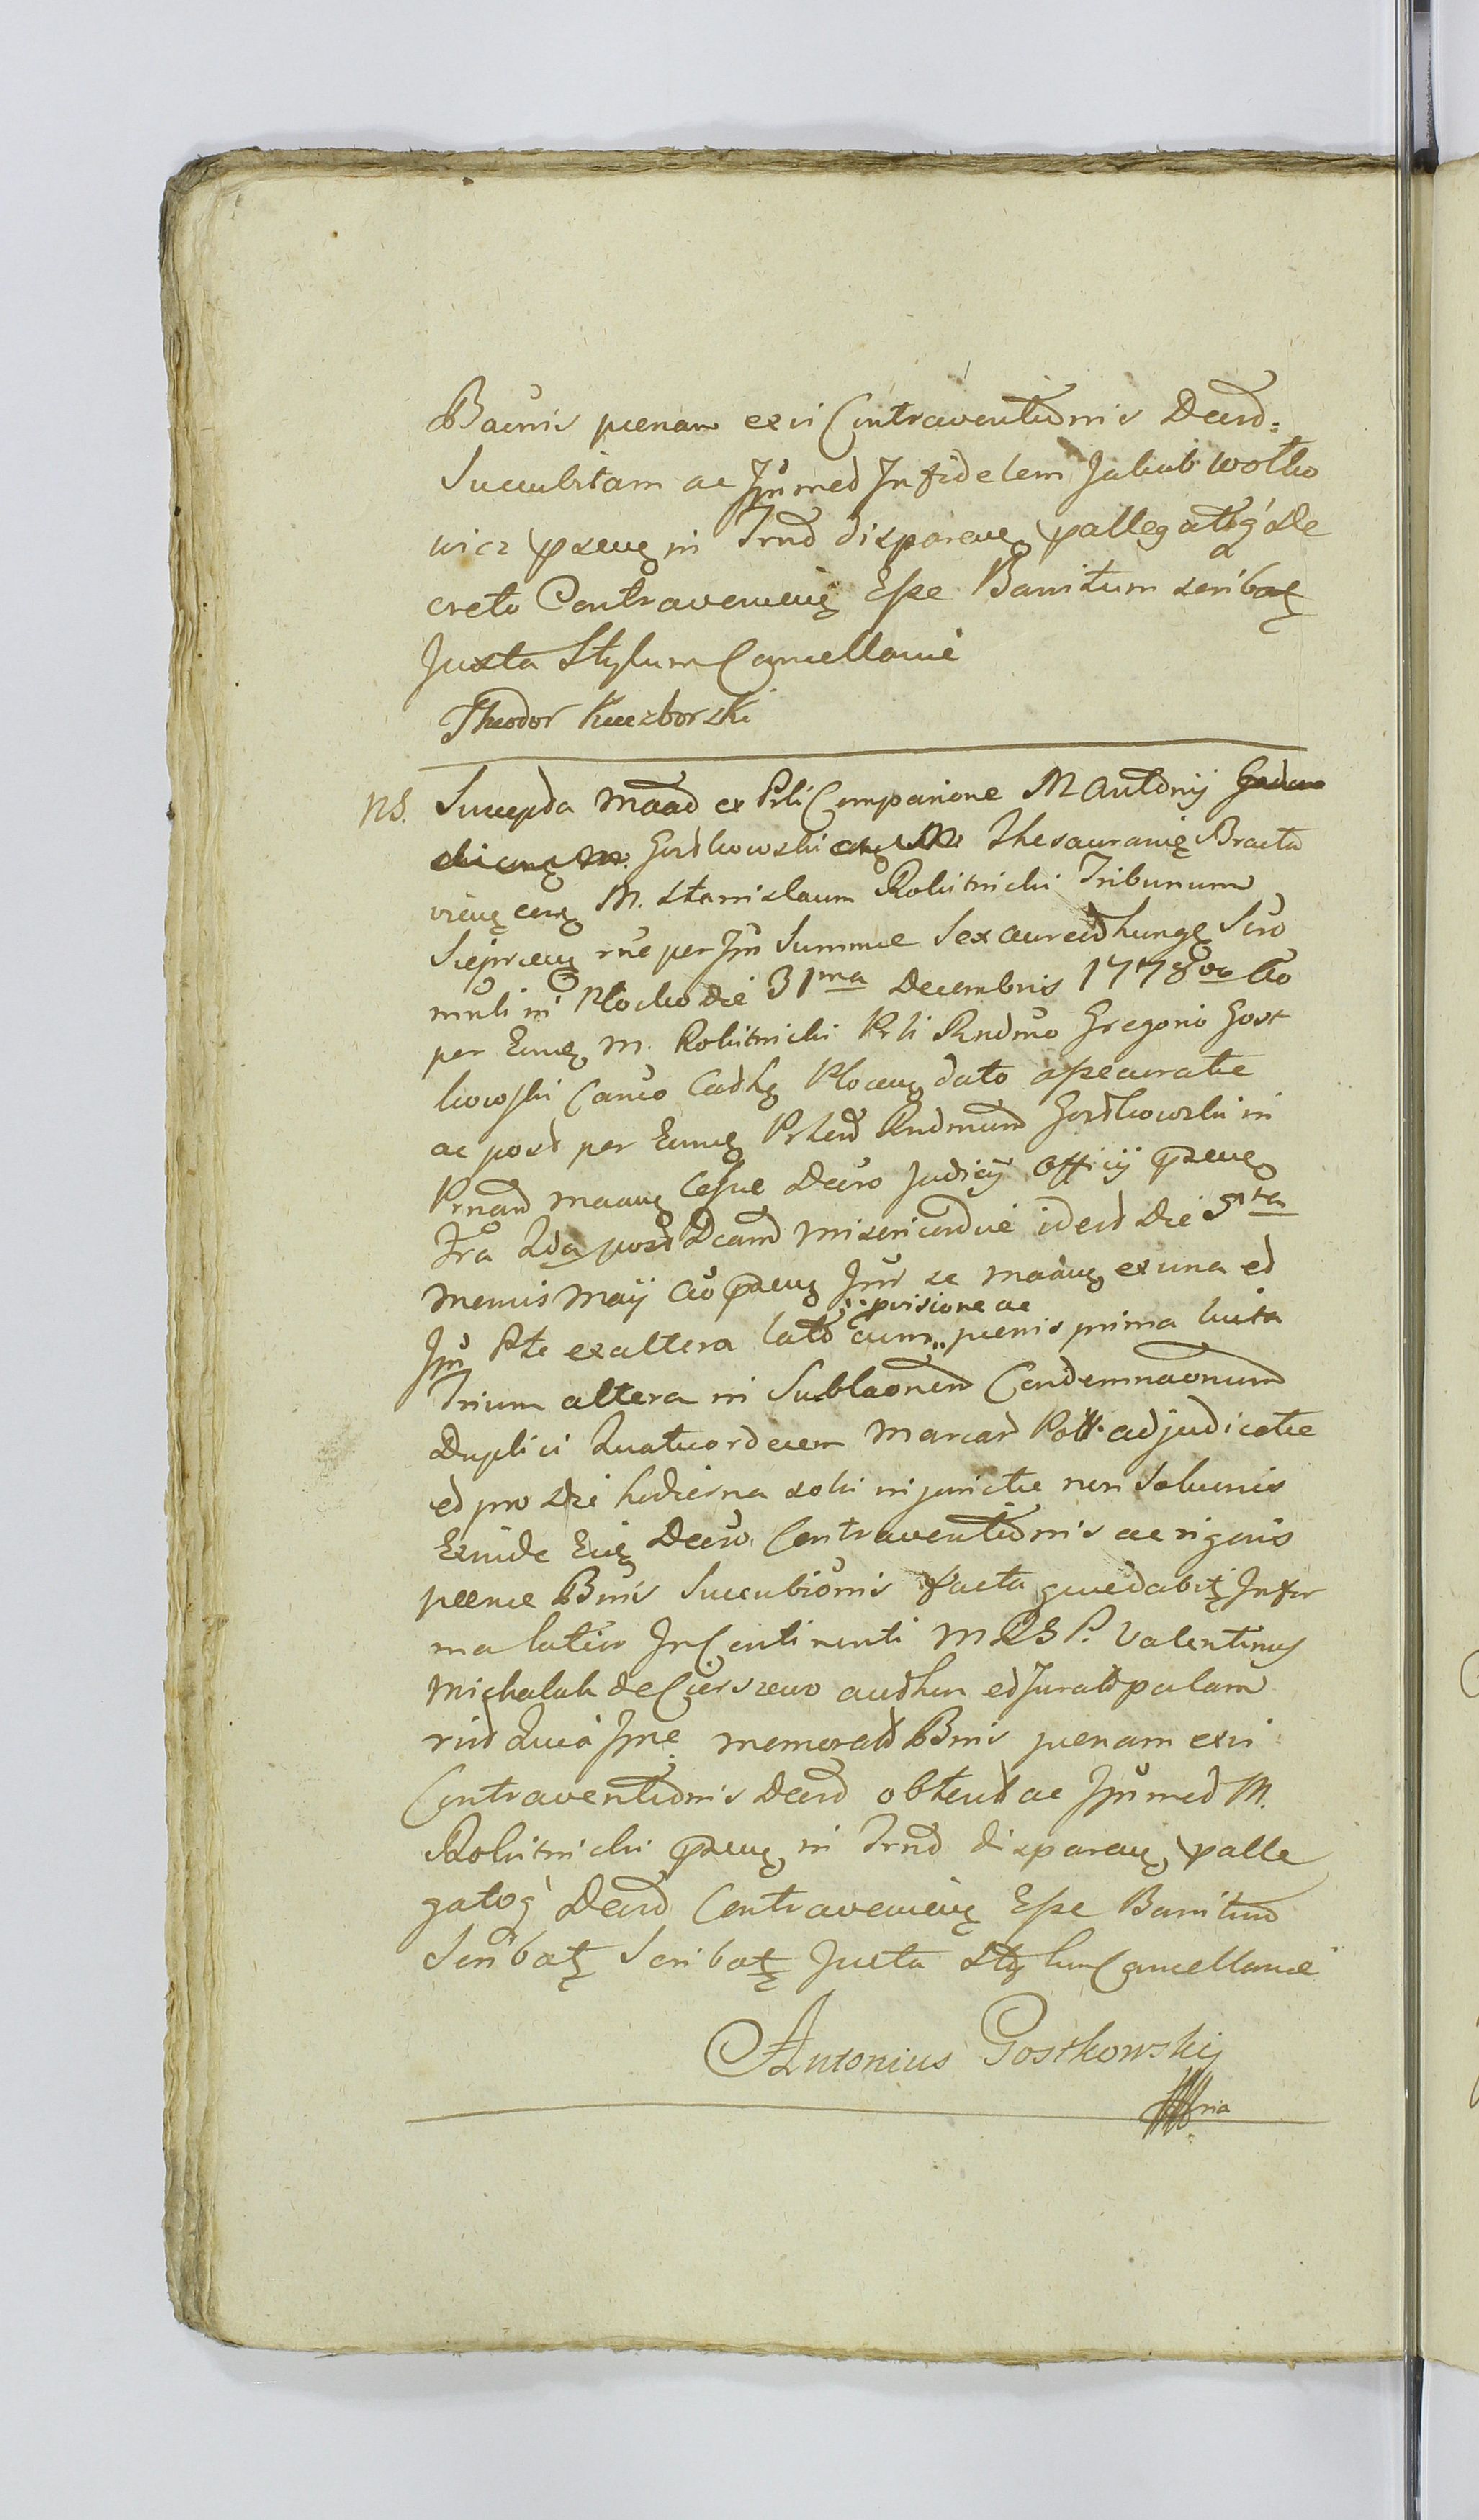 Banis penam ex vi Contraventionis Decrd=
Succubitam ac Jpumed Infidelem Jakub Wolko
wicz pseng in Trnd disparen pallegatog De
creto Contravenieng Esse Banitum scribat
Juxta Stylum Cancellariae
Theodor Kuczborski
NS. Succepta maad ex Prli Comparione M Antonij
Gostkowski Thesaurarie Bracla
vieng cerq M. Stanislaum Rokitnicki Tribunum
Sieprceng rne per Jpn Summae Sex aureord hungq Scro
muli in Plocko die 31ma Decembris 1778vo Ao
per Eunq M. Rokitnicki Prli Rndmo Gregorio Gost
kowski Canco CadhqPloceng dato assecuratae
ac post per Eunq Prlend Rndmum Gostkowski in
Prnand maaug Cessae Decro Judicij Officij pseng
Fra 2da post Dcam Misericordiae idest die 5ta
mensis Maij Ao pseng Jnr se maaug ex una ed
Jpn Pte ex altera lato cum provisione ac penis prima luita
Trium altera in Sublaonem Condemnaonum
Duplici Quatuordecem Marcar Poll. adjudicatae
ed pro die hodierna solvi injunctae non Solucnis
Exinde Ejq Decro Contraventionis ac rigoris
penae Bnis Succubionis facta quedabit Infor
ma latius In Continenti MRSP. Valentinus
Michalak de Cierszewo audhen ed Juratd palam
rid Quia Jpne memoratd Bnis penam ex vi
Contraventionis Decrd obtend ac Jpumed M.
Rokitnicki pseng in Trnd disparen palle
gatog Decrd Contravenieng Esse Banitum
Scribat Scribat Juxta Stylum Cancellariae
Antonius Gostkowskij